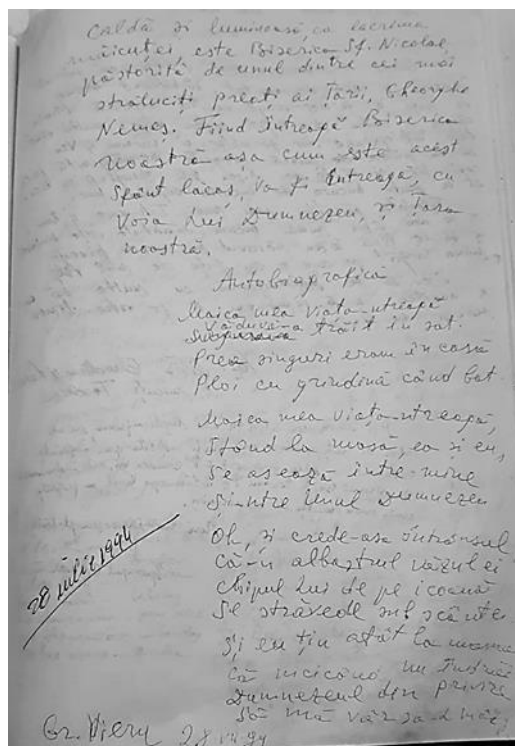 Caldă și luminoasă, ca lacrima
măicuței, este Biserica Sf. Nicolae,
păstorită de unul dintre cei mai
străluciți preoți ai Țării, Gheorghe
Nemeș. Fiind întreagă Biserica
noastră așa cum este acest
Sfânt lăcaș, va fi întreagă, cu
Voia Lui Dumnezeu, și Țara
noastră.
Autobiografică
Maică mea viața-ntreagă
Văduvă-a trăit în sat.
Prea singuri eram în casă
Ploi cu grindină când bat.
Maica mea viața-ntreagă,
Stând la masă, ea și eu,
Se așează între mine
Și-ntre Unul Dumnezeu
Oh, și crede-așa întrânsul
Că-n albastrul văzul ei
Chipul Lui de pe icoană
Se străvede sub scântei
Și eu țin atât la mama
Că nicicând nu
Dumnezeul din privirea
Să mă văz
28 iulie 1994
Gr. Vieru 28.VII.94